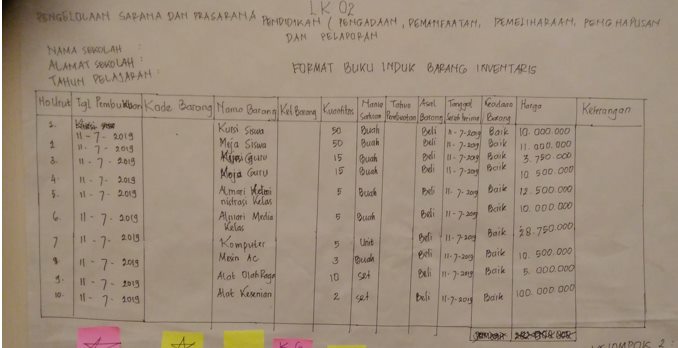 LK 02
PENGELOLAAN SARANA DAN PRASARANA PENDIDIKAN ( PENGADAAN, PEMANFAATAN, PEMELIHARAAN, PENGHAPUSAN
DAN PELAPORAN
NAMA SEKOLAH :
ALAMAT SEKOLAH :
TAHUN PELAJARAN :
FORMAT BUKU INDUK BARANG INVENTARIS
No Urut Tgl Pembukuan Kode Barang Nama Barang Ket Barang Kuantitas Nama Satuan Tahun Pembuatan Asal Barang Tanggal Serah terima Keadaan Barang Harga Keterangan
1. 11 - 7 - 2019 Kursi Siswa 50 Buah Beli 11-7-2019 Baik 10.000.000
2 11 - 7 - 2019 Meja Siswa 50 Buah Beli 11-7-2019 Baik 11.000.000
3. 11 - 7 - 2019 Kursi Guru 15 Buah Beli 11-7-2019 Baik 3.750.000
4. 11 - 7 - 2019 Meja Guru 15 Buah Beli 11-7-2019 Baik 10.500.000
5. 11 - 7 - 2019 Almari nistrasi Kelas 5 Buah Beli 11-7-2019 Baik 12.500.000
6. 11 - 7 - 2019 Almari Media Kelas 5 Buah Beli 11-7-2019 Baik 10.000.000
7 11 - 7 - 2019 Komputer 5 Unit Beli 11-7-2019 Baik 28.750.000
8. 11 - 7 - 2019 Mesin AC 3 Buah Beli 11-7-2019 Baik 10.500.000
9. 11 - 7 - 2019 Alat Olah Raga 10 set Beli 11-7-2019 Baik 5.000.000
10. 11 - 7 - 2019 Alat Kesenian 2 set Beli 11-7-2019 Baik 100.000.000
KELOMPOK 2 :